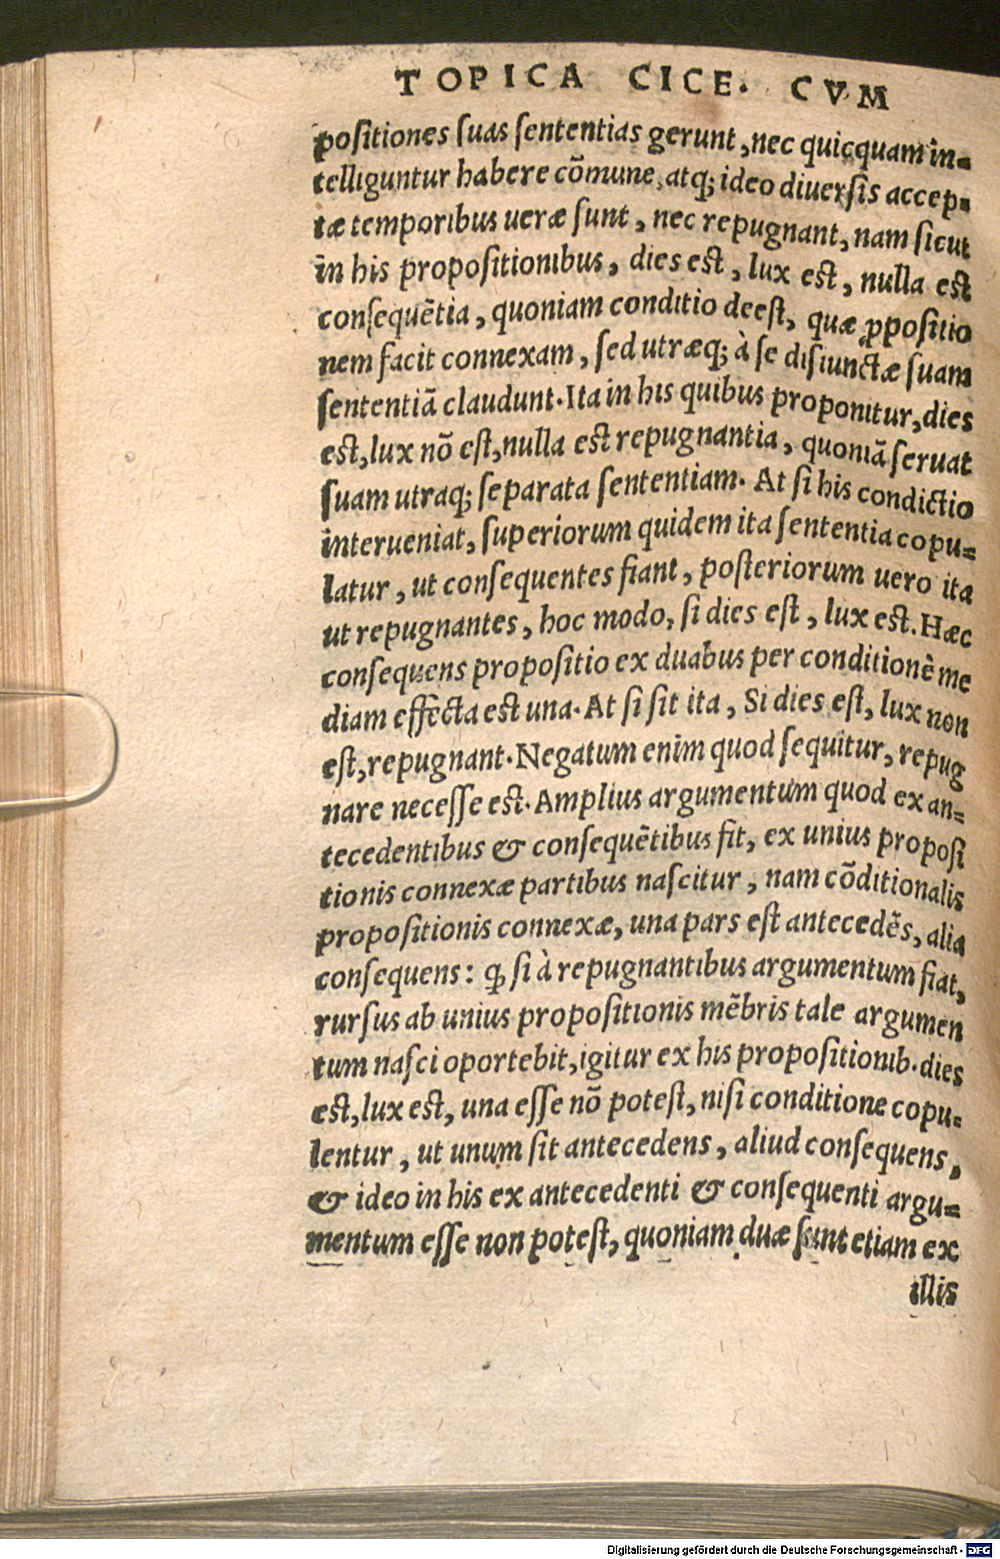 TOPICA CICE. CVM
positiones suas sententias gerunt, nec quicquam in-
telliguntur habere cōmune, atq; ideo diuersis accep-
tæ temporibus ueræ sunt, nec repugnant, nam sicut
in his propositionibus, dies est, lux est, nulla est
consequētia, quoniam conditio deest, quæ ꝓpositio
nem facit connexam, sed utræq; à se disiunctæ suam
sententiā claudunt. Ita in his quibus proponitur, dies
est, lux nō est, nulla est repugnantia, quoniā seruat
suam utraq; separata sententiam. At si his condictio
interueniat, superiorum quidem ita sententia copu-
latur, ut consequentes fiant, posteriorum uero ita
ut repugnantes, hoc modo, si dies est, lux est. Hæc
consequens propositio ex duabus per conditionē me
diam effecta est una. At si sit ita, Si dies est, lux non
est, repugnant. Negatum enim quod sequitur, repug
nare necesse est. Amplius argumentum quod ex an-
tecedentibus & consequētibus fit, ex unius proposi
tionis connexæ partibus nascitur, nam cōditionalis
propositionis connexæ, una pars est antecedēs, alia
consequens: ꝙ si à repugnantibus argumentum fiat,
rursus ab unius propositionis mēbris tale argumen
tum nasci oportebit, igitur ex his propositionib. dies
est, lux est, una esse nō potest, nisi conditione copu-
lentur, ut unum sit antecedens, aliud consequens,
& ideo in his ex antecedenti & consequenti argu-
mentum esse non potest, quoniam duæ sunt etiam ex
illis
Digitalisierung gefördert durch die Deutsche Forschungsgemeinschaft - DFG